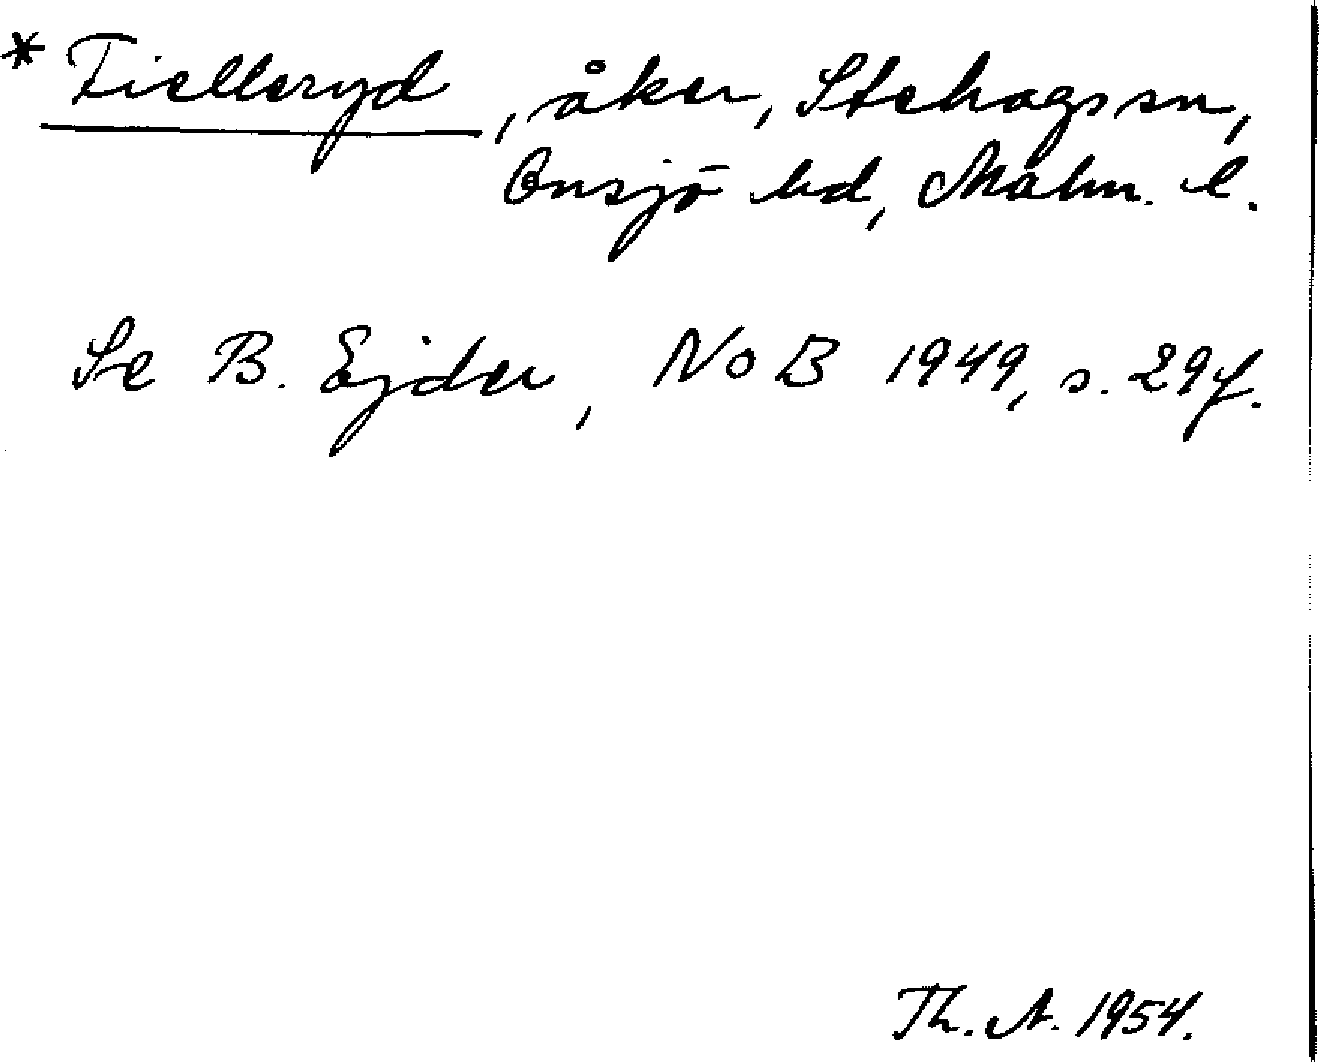 * Fielleryd, åker, Stehags sn,
Onsjö hd, Malm. l.
Se B. Ejder, NoB 1949, s. 29f.
Th. A. 1954.